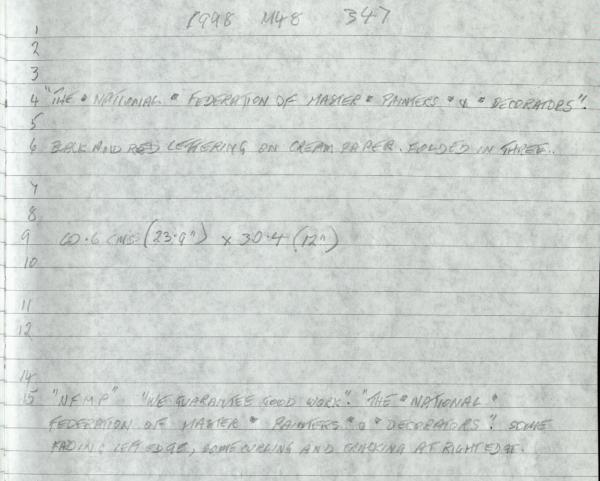 1998 M48 347
1
2
3
4 "THE • NATIONAL • FEDERATION OF MASTER • PAINTERS • & • DECORATORS".
5
6 BLACK AND RED LETTERING ON CREAM PAPER. FOLDED IN THREE.
7
8
9 60.6 CMS (23.9") x 30.4 (12")
10
11
12
14
15 "NFMP" "WE GUARANTEE GOOD WORK". "THE • NATIONAL •
FEDERATION OF MASTER • PAINTERS • & • DECORATORS". SOME
FADING LEFT EDGE, SOME CURLING AND CRACKING AT RIGHT EDGE.